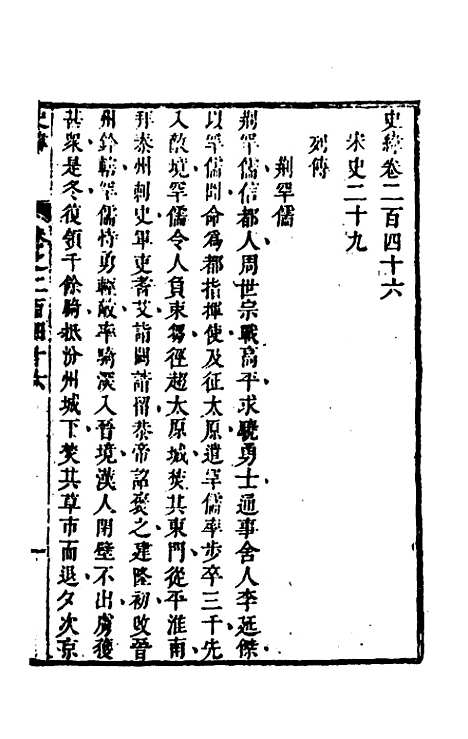 史緯卷二百四十六
宋史二十九
列傳
荆罕儒
荆罕儒信都人周世宗戰高平求驍勇士通事舍人李延傑
以罕儒聞命爲都指揮使及征太原遣罕儒率步卒三千先
入敵境罕儒令人負束芻徑趨太原城焚其東門從平淮南
拜泰州刺史軍吏耆艾詣闕請留恭帝詔褒之建隆初改晉
州鈐轄罕儒恃勇輕敵率騎深入晉境漢人閉壁不出虜獲
甚衆是冬復領千餘騎抵汾州城下焚其草市而退夕次京
史緯
卷之二百四十六
一